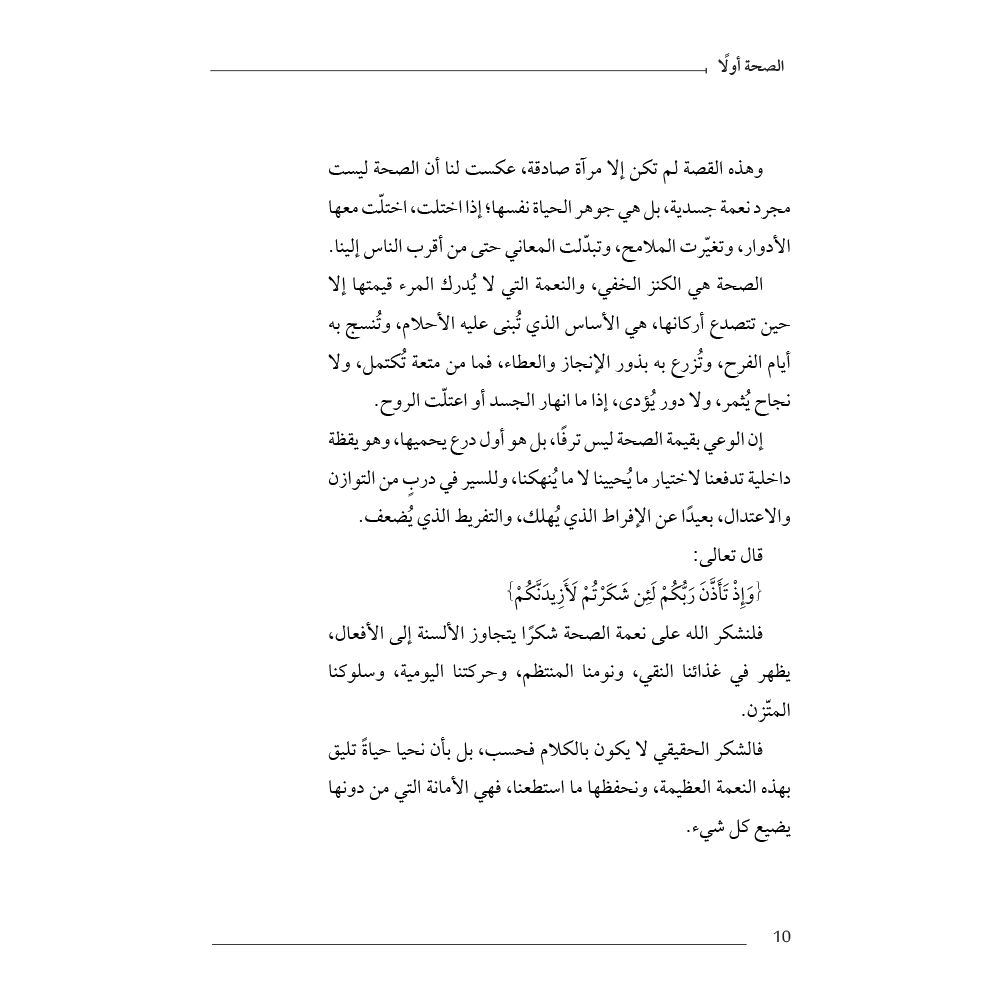 الصحة أولًا
وهذه القصة لم تكن إلا مرآة صادقة، عكست لنا أن الصحة ليست
مجرد نعمة جسدية، بل هي جوهر الحياة نفسها؛ إذا اختلت، اختلّت معها
الأدوار، وتغيّرت الملامح، وتبدّلت المعاني حتى من أقرب الناس إلينا.
الصحة هي الكنز الخفي، والنعمة التي لا يُدرك المرء قيمتها إلا
حين تتصدع أركانها، هي الأساس الذي تُبنى عليه الأحلام، وتُنسج به
أيام الفرح، وتُزرع به بذور الإنجاز والعطاء، فما من متعة تُكتمل، ولا
نجاح يُثمر، ولا دور يُؤدى، إذا ما انهار الجسد أو اعتلّت الروح.
إن الوعي بقيمة الصحة ليس ترفًا، بل هو أول درع يحميها، وهو يقظة
داخلية تدفعنا لاختيار ما يُحيينا لا ما يُنهكنا، وللسير في دربٍ من التوازن
والاعتدال، بعيدًا عن الإفراط الذي يُهلك، والتفريط الذي يُضعف.
قال تعالى:
{وَإِذْ تَأَذَّنَ رَبُّكُمْ لَئِن شَكَرْتُمْ لَأَزِيدَنَّكُمْ}
فلنشكر الله على نعمة الصحة شكرًا يتجاوز الألسنة إلى الأفعال،
يظهر في غذائنا النقي، ونومنا المنتظم، وحركتنا اليومية، وسلوكنا
المتّزن.
فالشكر الحقيقي لا يكون بالكلام فحسب، بل بأن نحيا حياةً تليق
بهذه النعمة العظيمة، ونحفظها ما استطعنا، فهي الأمانة التي من دونها
يضيع كل شيء.
10